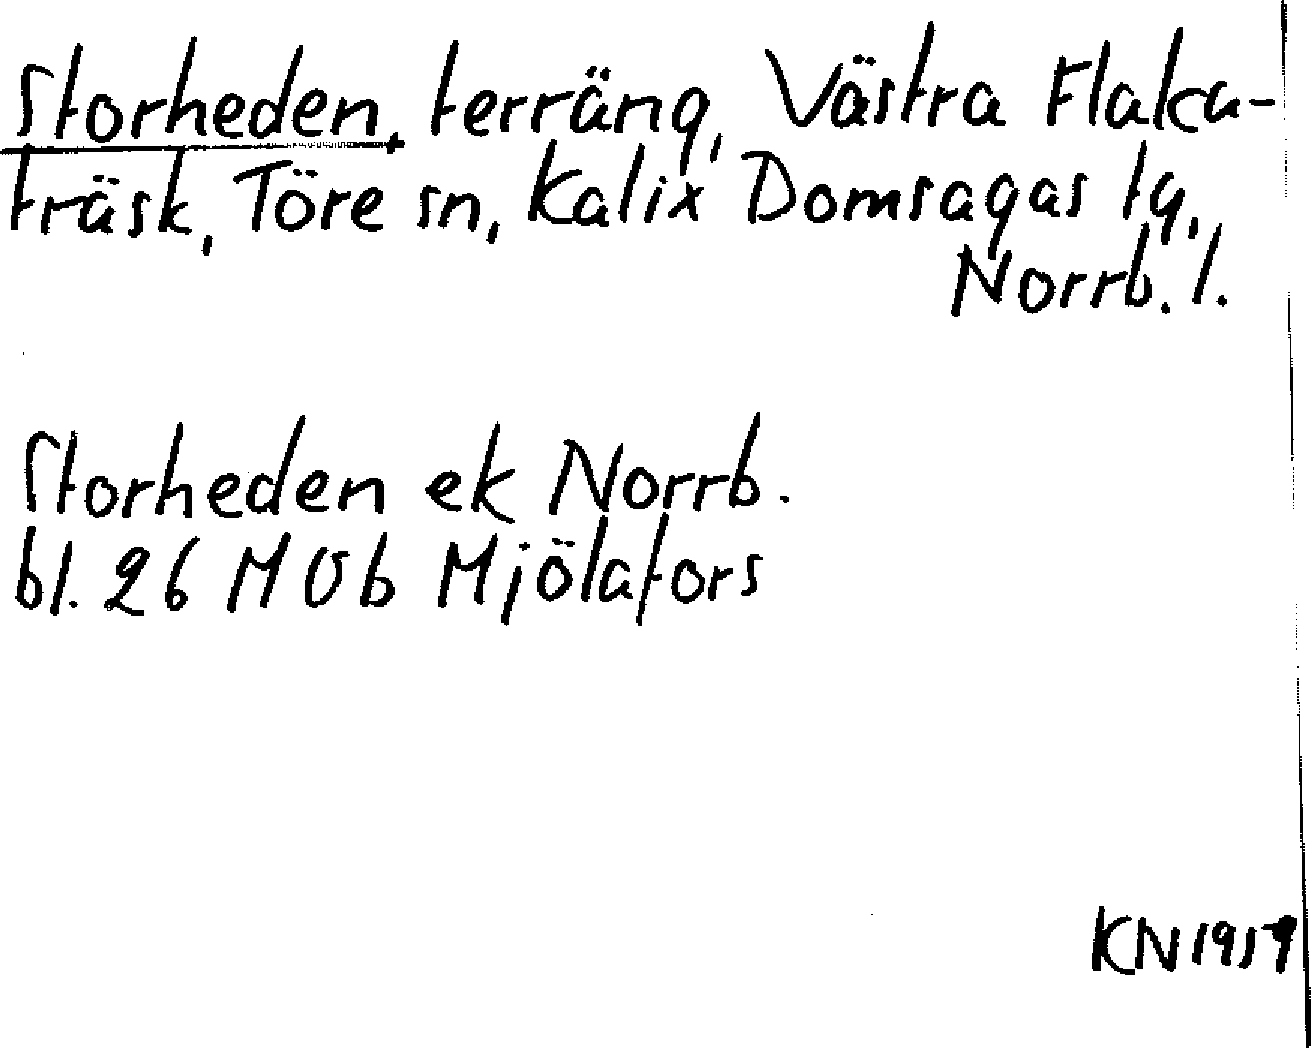 Storheden, terräng, Västra Flaka-
träsk, Töre sn, Kalix Domsagas tg,
Norrb. l.
Storheden ek Norrb.
bl. 26 M Ub Mjölafors
KN